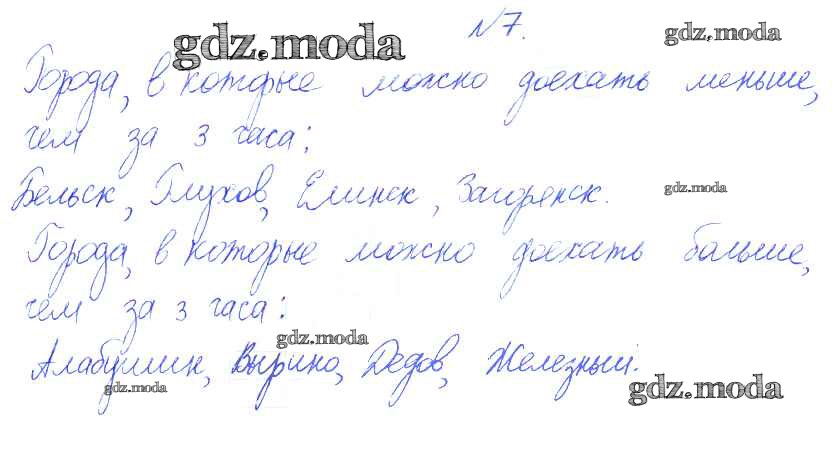 №7.
gdz.moda
gdz.moda
Города, в которые можно доехать меньше,
чем за 3 часа:
Бельск, Глухов, Елинск, Загорянск.
gdz.moda
Города, в которые можно доехать больше,
чем за 3 часа:
gdz.moda
Алабушин, Вырино, Дедов, Железный.
gdz.moda
gdz.moda